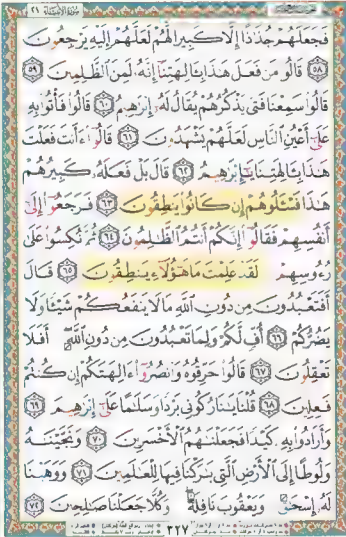 سورة الأنبياء ٢١
فَجَعَلَهُمْ جُذَٰذًا إِلَّا كَبِيرًا لَّهُمْ لَعَلَّهُمْ إِلَيْهِ يَرْجِعُونَ
٥٨ قَالُوا۟ مَن فَعَلَ هَٰذَا بِـَٔالِهَتِنَآ إِنَّهُۥ لَمِنَ ٱلظَّٰلِمِينَ ٥٩
قَالُوا۟ سَمِعْنَا فَتًى يَذْكُرُهُمْ يُقَالُ لَهُۥٓ إِبْرَٰهِيمُ ٦٠ قَالُوا۟ فَأْتُوا۟ بِهِۦ
عَلَىٰٓ أَعْيُنِ ٱلنَّاسِ لَعَلَّهُمْ يَشْهَدُونَ ٦١ قَالُوٓا۟ ءَأَنتَ فَعَلْتَ
هَٰذَا بِـَٔالِهَتِنَا يَٰٓإِبْرَٰهِيمُ ٦٢ قَالَ بَلْ فَعَلَهُۥ كَبِيرُهُمْ
هَٰذَا فَسْـَٔلُوهُمْ إِن كَانُوا۟ يَنطِقُونَ ٦٣ فَرَجَعُوٓا۟ إِلَىٰٓ
أَنفُسِهِمْ فَقَالُوٓا۟ إِنَّكُمْ أَنتُمُ ٱلظَّٰلِمُونَ ٦٤ ثُمَّ نُكِسُوا۟ عَلَىٰ
رُءُوسِهِمْ لَقَدْ عَلِمْتَ مَا هَٰٓؤُلَآءِ يَنطِقُونَ ٦٥ قَالَ
أَفَتَعْبُدُونَ مِن دُونِ ٱللَّهِ مَا لَا يَنفَعُكُمْ شَيْـًٔا وَلَا
يَضُرُّكُمْ ٦٦ أُفٍّ لَّكُمْ وَلِمَا تَعْبُدُونَ مِن دُونِ ٱللَّهِ أَفَلَا
تَعْقِلُونَ ٦٧ قَالُوا۟ حَرِّقُوهُ وَٱنصُرُوٓا۟ ءَالِهَتَكُمْ إِن كُنتُمْ
فَٰعِلِينَ ٦٨ قُلْنَا يَٰنَارُ كُونِى بَرْدًا وَسَلَٰمًا عَلَىٰٓ إِبْرَٰهِيمَ ٦٩
وَأَرَادُوا۟ بِهِۦ كَيْدًا فَجَعَلْنَٰهُمُ ٱلْأَخْسَرِينَ ٧٠ وَنَجَّيْنَٰهُ
وَلُوطًا إِلَى ٱلْأَرْضِ ٱلَّتِى بَٰرَكْنَا فِيهَا لِلْعَٰلَمِينَ ٧١ وَوَهَبْنَا
لَهُۥٓ إِسْحَٰقَ وَيَعْقُوبَ نَافِلَةً وَكُلًّا جَعَلْنَا صَٰلِحِينَ ٧٢
٣٢٧